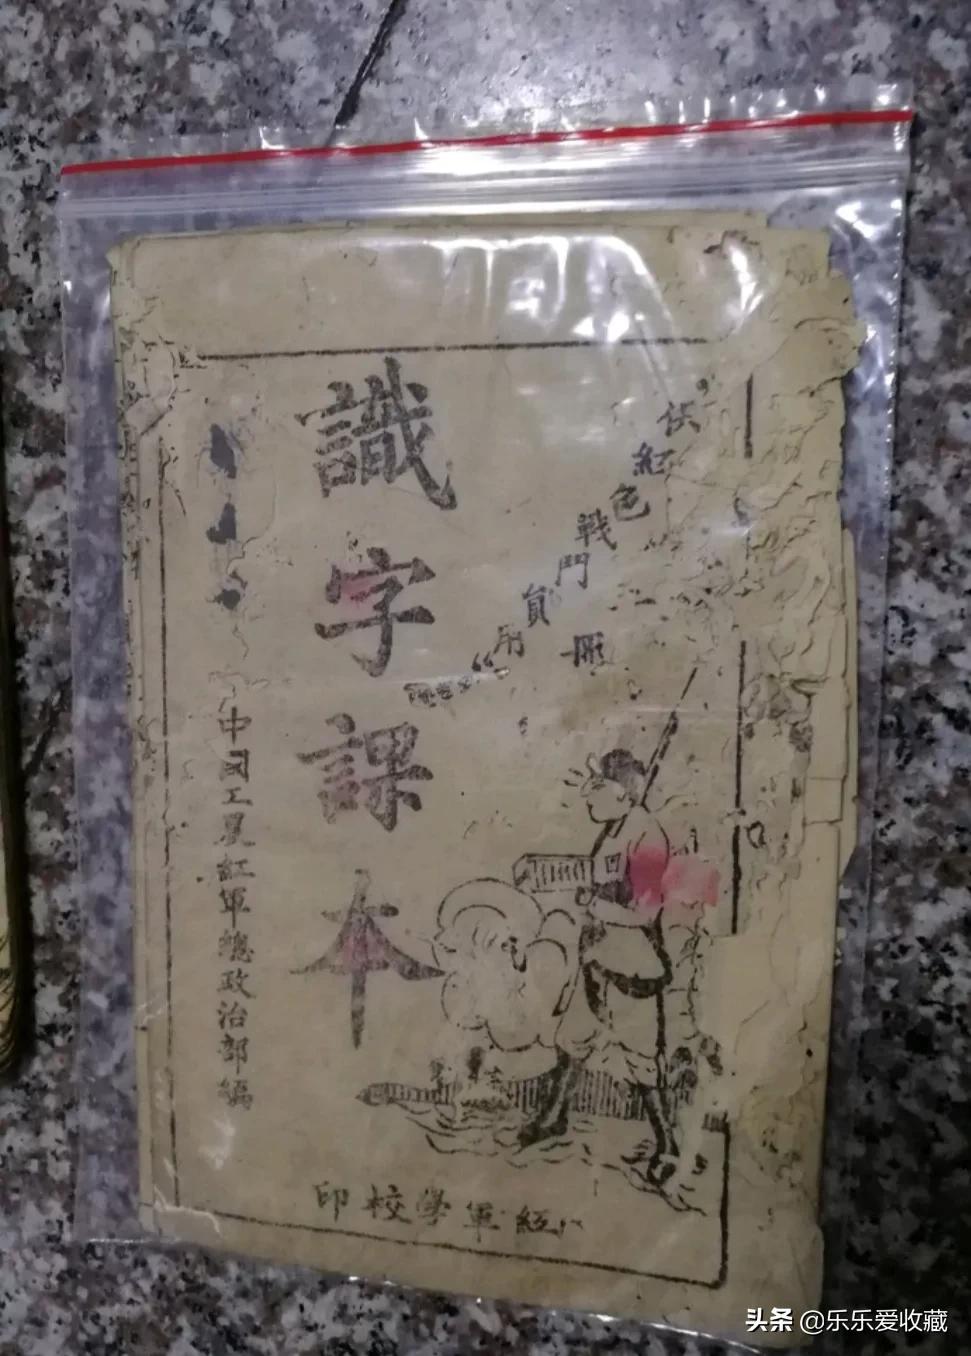 供紅色戰鬥員用
冊
識字課本
中國工農紅軍總政治部編
紅軍學校印
头条 @乐乐爱收藏